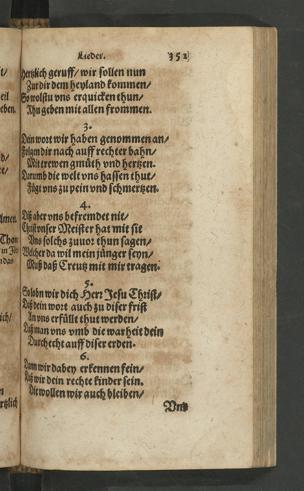 Lieder. 352
Hertzlich geruff/ wir sollen nun
Zur dir dem heyland kommen/
So wolstu vns erquicken thun/
Rhu geben mit allen frommen.
3.
Dein wort wir haben genommen an/
Folgen dir nach auff rechter bahn/
Mit trewen gmüth vnd hertzen.
Darumb die welt vns hassen thut/
Fügt vns zu pein vnd schmertzen.
4.
Diß aber vns befremdet nit/
Christ vnser Meister hat mit sit
Vns solchs zuuor thun sagen/
Welcher da wil mein jünger seyn/
Muß daß Creutz mit mir tragen.
5.
So lobn wir dich Herr Jesu Christ/
Daß dein wort auch zu diser frist
An vns erfüllt thut werden/
Daß man vns vmb die warheit dein
Durchecht auff diser erden.
6.
Dann wir dabey erkennen fein/
Daß wir dein rechte kinder sein.
Die wollen wir auch bleiben/
Vnd